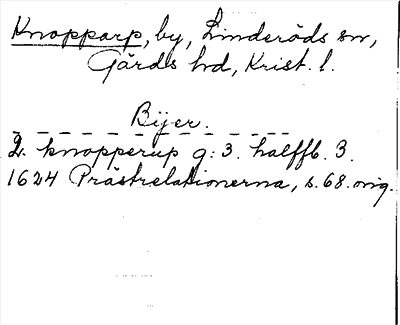 Knopparp, by, Linderöds sn,
Gärds hd, Krist. l.
Bijer.
2. knopperup g: 3. halffb. 3.
1624 Prästrelationerna, s. 68. orig.